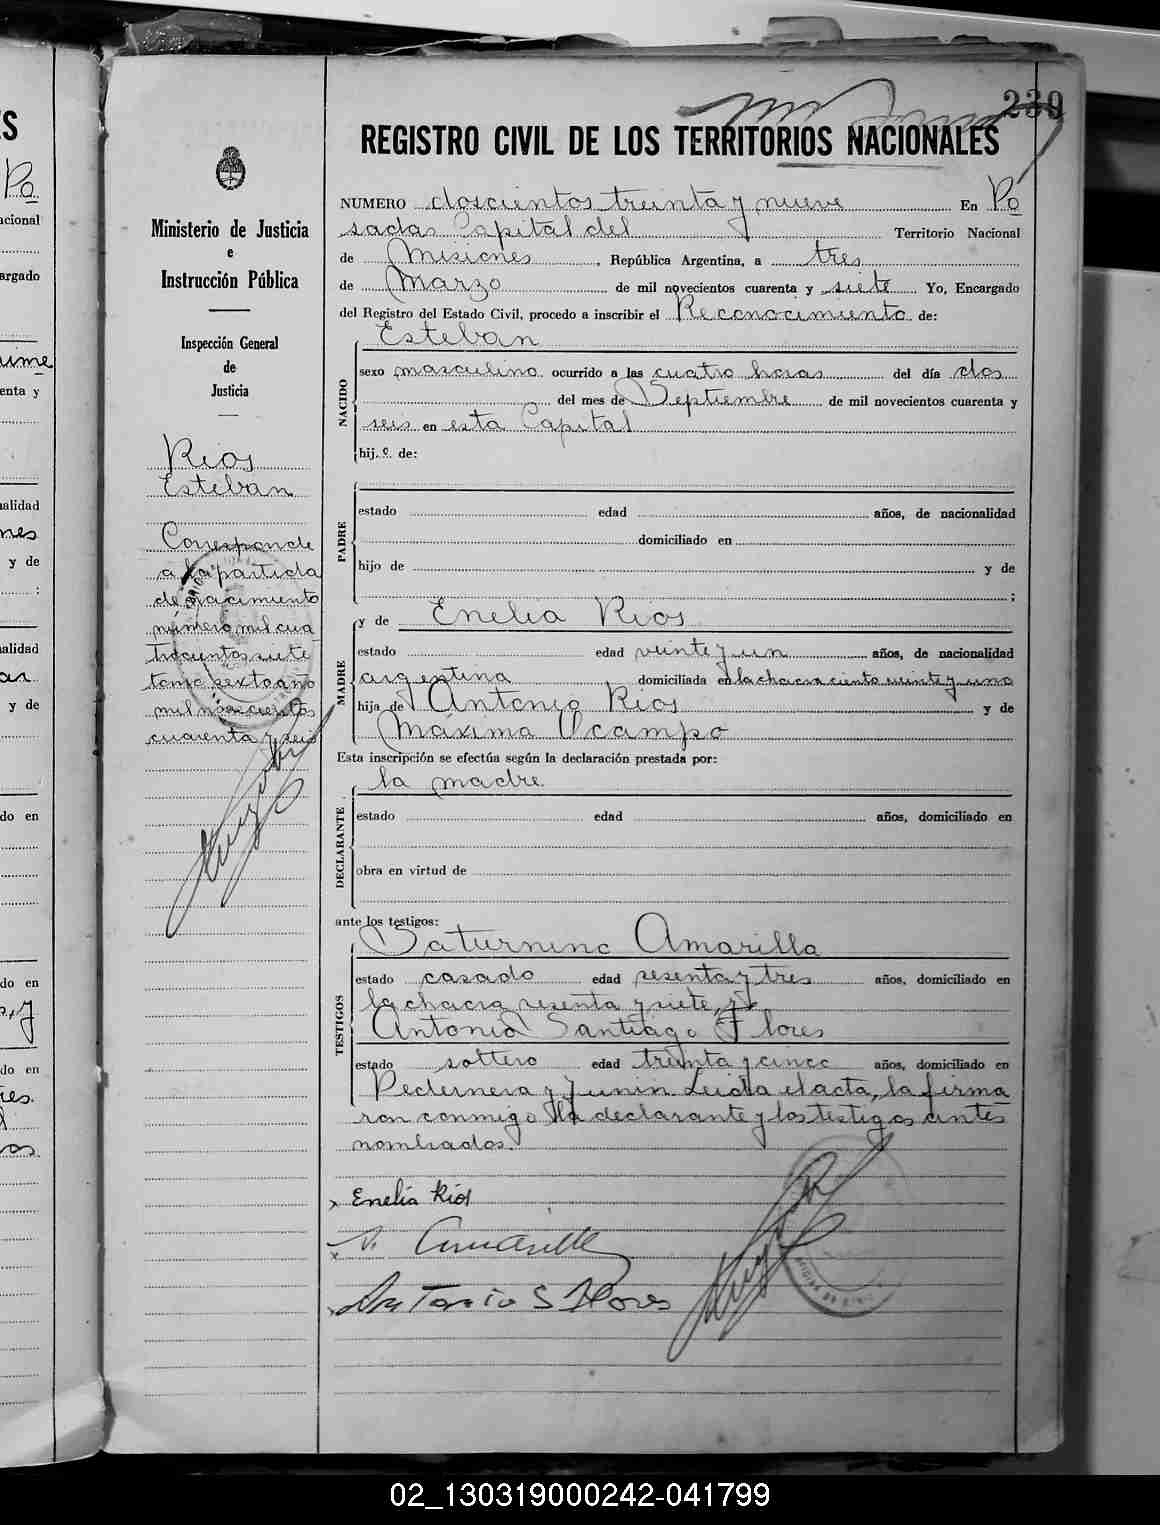 239
REGISTRO CIVIL DE LOS TERRITORIOS NACIONALES
NUMERO doscientos treinta y nueve En Po
sadas Capital del Territorio Nacional
de Misiones, República Argentina, a tres
de Marzo de mil novecientos cuarenta y siete Yo, Encargado
del Registro del Estado Civil, procedo a inscribir el Reconocimiento de:
NACIDO
Esteban
sexo masculino ocurrido a las cuatro horas del día dos
del mes de Septiembre de mil novecientos cuarenta y
seis en esta Capital
hij.o. de:
PADRE
estado edad años, de nacionalidad
domiciliado en
hijo de y de
;
MADRE
y de Enelia Rios
estado edad veinte y un años, de nacionalidad
argentina domiciliada en la chacra ciento veinte y uno
hija de Antonio Rios y de
Máxima Ocampo
Esta inscripción se efectúa según la declaración prestada por:
la madre.
DECLARANTE
estado edad años, domiciliado en
obra en virtud de
ante los testigos:
TESTIGOS
Saturnino Amarilla
estado casado edad sesenta y tres años, domiciliado en
la chacra sesenta y siete, y
Antonio Santiago Flores
estado soltero edad treinta y cinco años, domiciliado en
Pedernera y Junin Leida el acta, la firma
ron conmigo la declarante y los testigos antes
nombrados.
Enelia Rios
S. Amarilla
Antonio S Flores
Ministerio de Justicia
e
Instrucción Pública
Inspección General
de
Justicia
Rios
Esteban
Corresponde
a la partida
de nacimiento
número mil cua
trocientos siete
tomo sexto año
mil novecientos
cuarenta y seis
ES
Po
acional
argado
enta y
nalidad
y de
:
nalidad
y de
do en
do en
do en
02_130319000242-041799